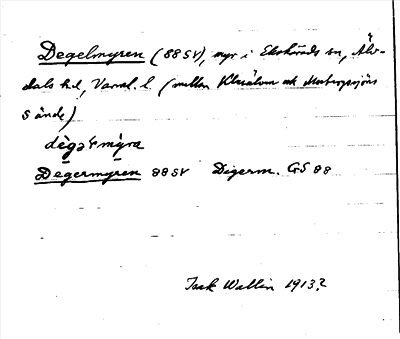 Degelmyren (88 SV), myr i Ekshärads sn, Älv-
dals hd, Värml. l. (mellan Klarälven och
S ände)
dègəꞎmỳra
Degermyren 88 SV Digerm. GS 88
Isak Wallin 1913?